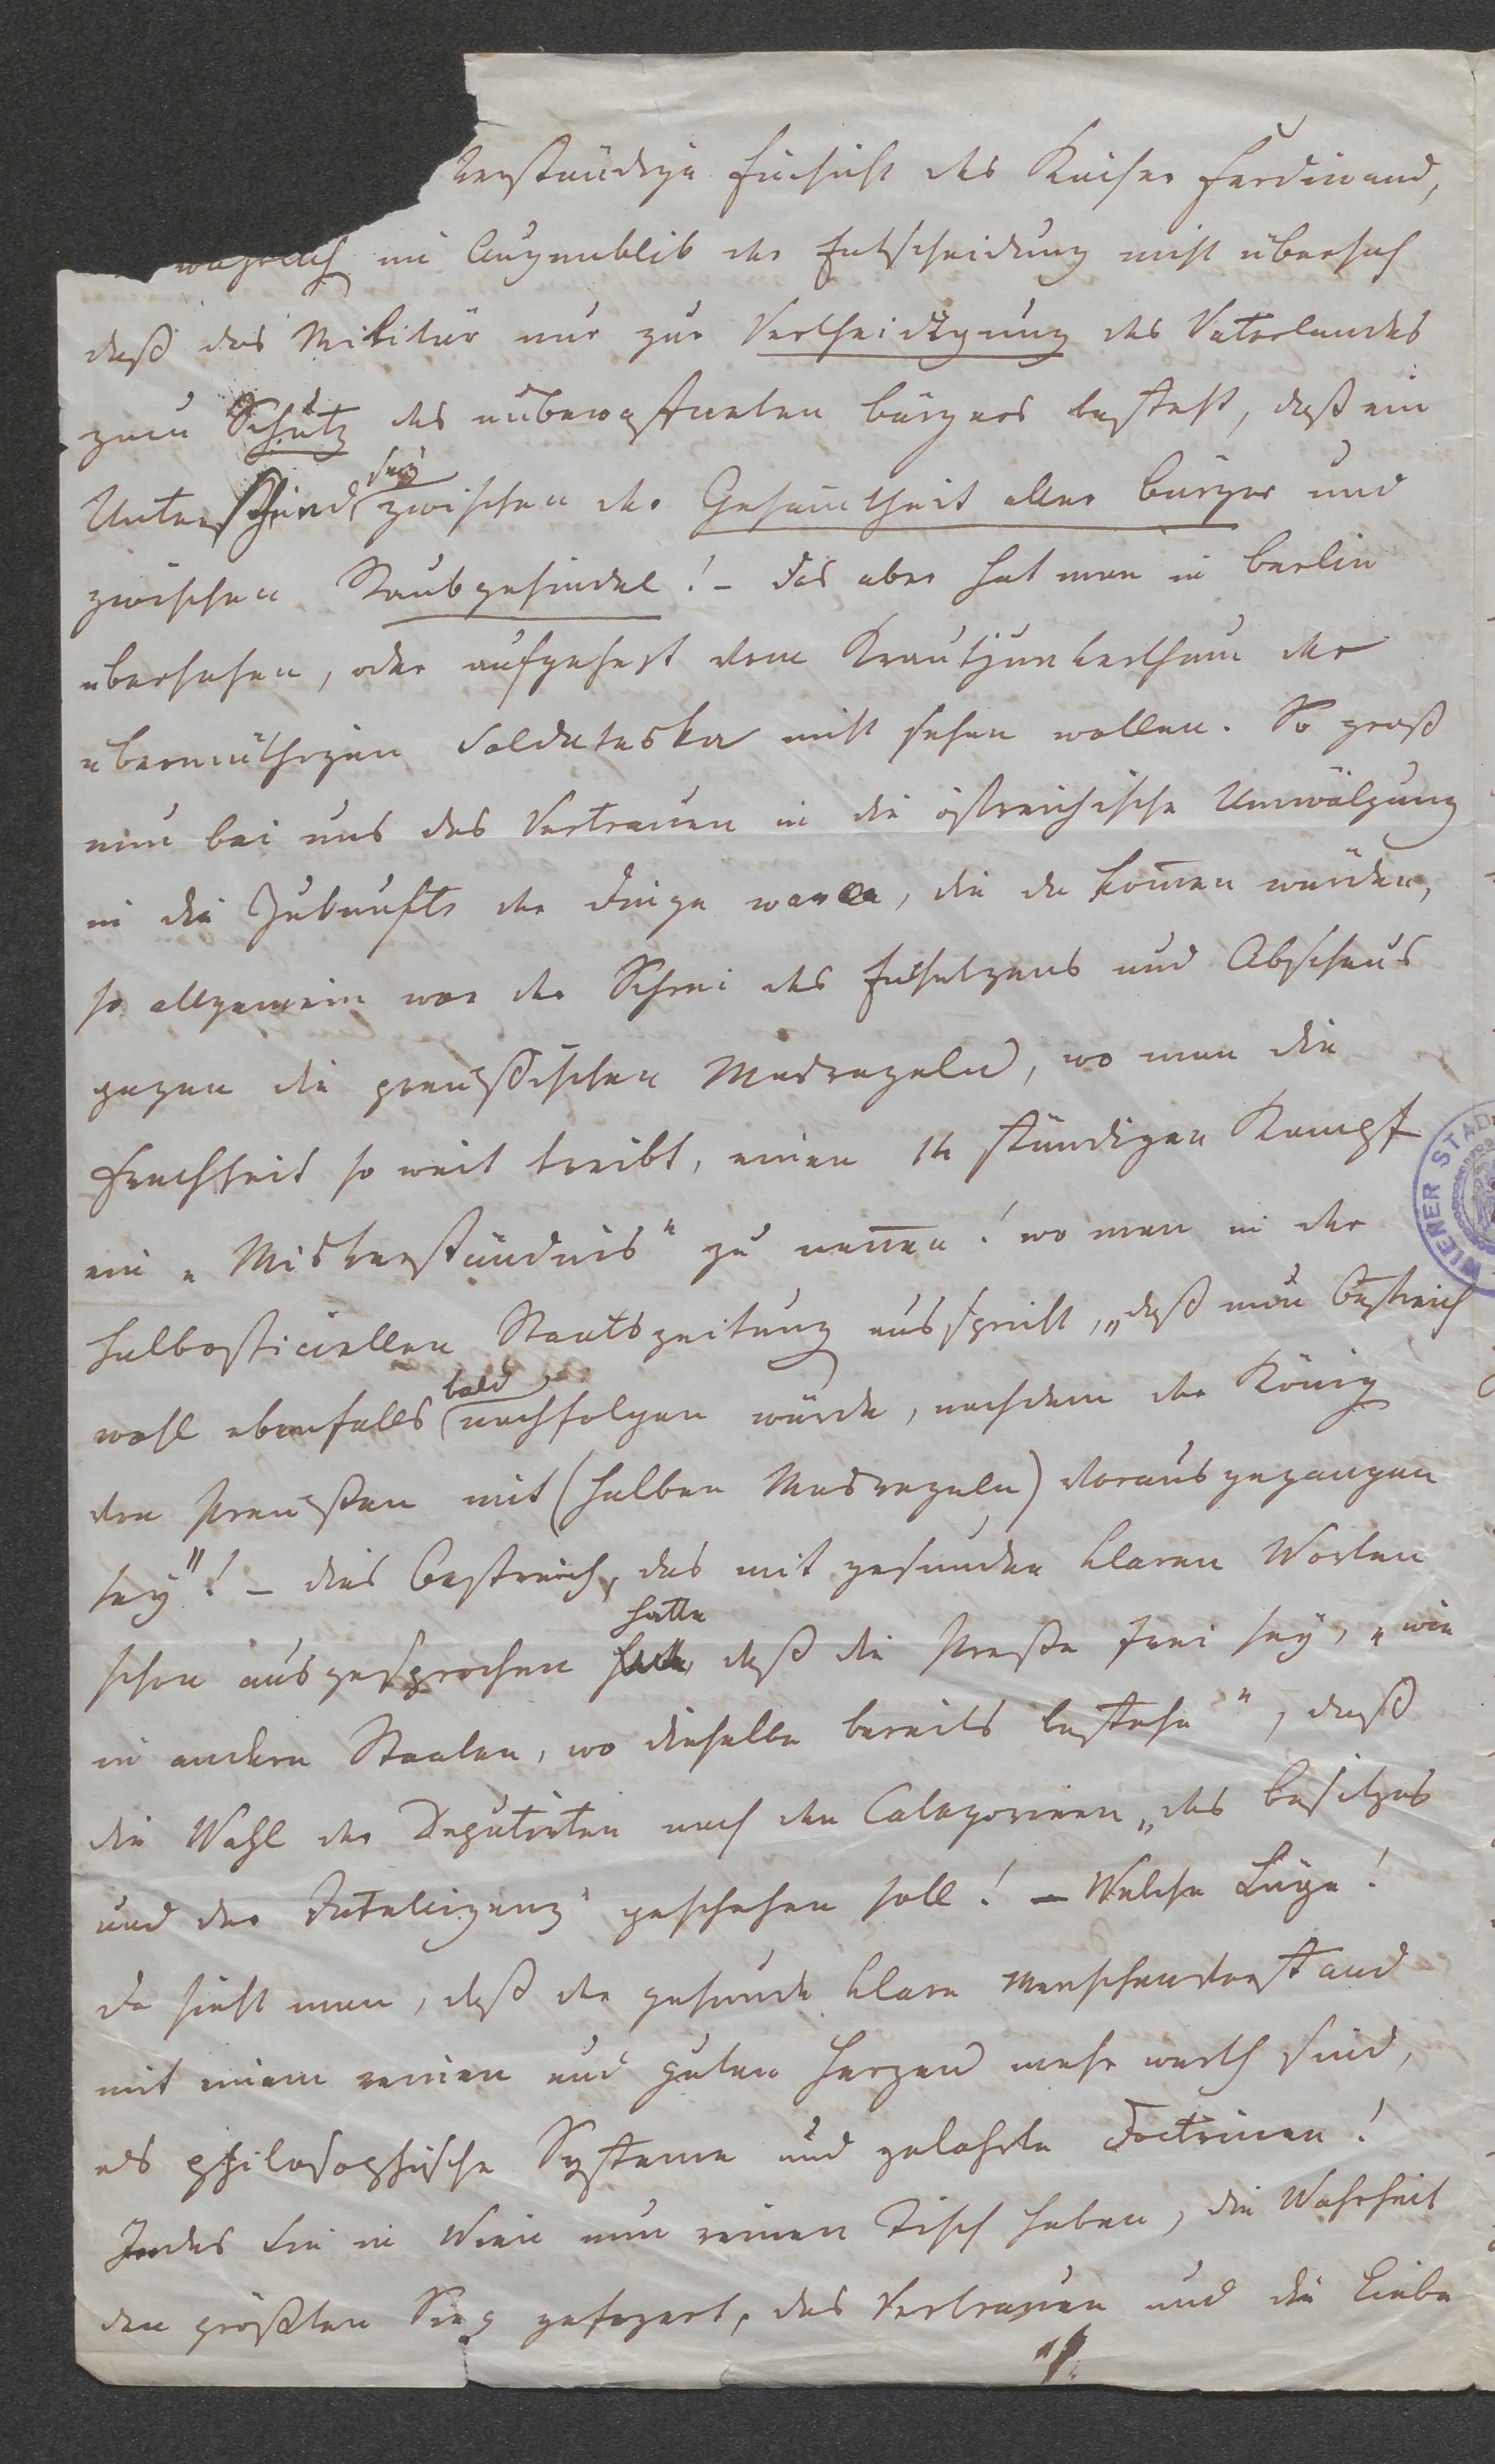 verständige Einsicht des Kaiser Ferdinand,
wahrlich im Augenblik der Entscheidung nicht übersah
daß das Militär nur zur Vertheidigung des Vaterlandes
zum Schutz des unbewaffneten Bürgers besteht, daß ein
Unterschied sey zwischen der Gesam̄theit aller Bürger und
zwischen Raubgesindel! – Das aber hat man in Berlin
übersehen, oder aufgehezt vom Krautjunkerthum der
übermüthigen Soldateska nicht sehen wollen. So groß
nun bei uns das Vertrauen in die östreichische Umwälzung
in die Zukunft der Dinge war, die da kom̄en würden,
so allgemein war der Schrei des Entsetzens und Abscheus
gegen die preußischen Masregeln, wo man die
Frechheit so weit treibt, einen 14 stündigen Kampf
ein „Misverständnis" zu nen̄en! wo man in der
halboffiziellen Staatszeitung ausspricht, „daß nun Oestreich
wohl ebenfalls bald nachfolgen würde, nachdem der König
von Preußen mit (halben Masregeln) vorausgegangen
sey"! – dies Oestreich, das mit gesunden klaren Worten
schon ausgesprochen hatte daß die Presse frei sey, „wie
in andern Staaten, wo dieselbe bereits bestehe", daß
die Wahl der Deputirten nach den Categorieen „des Besitzes
und der Inteligenz" geschehen soll! – Welche Lüge!
da sieht man, daß der gesunde klare Menschenverstand
mit einem reinen und guten Herzen mehr werth sind,
als philosophische Systeme und gelahrte Doctrinen!
Indes Sie in Wien nun reinen Tisch haben, die Wahrheit
den größten Sieg gefeyert, das Vertrauen und die Liebe
WIENER STAD